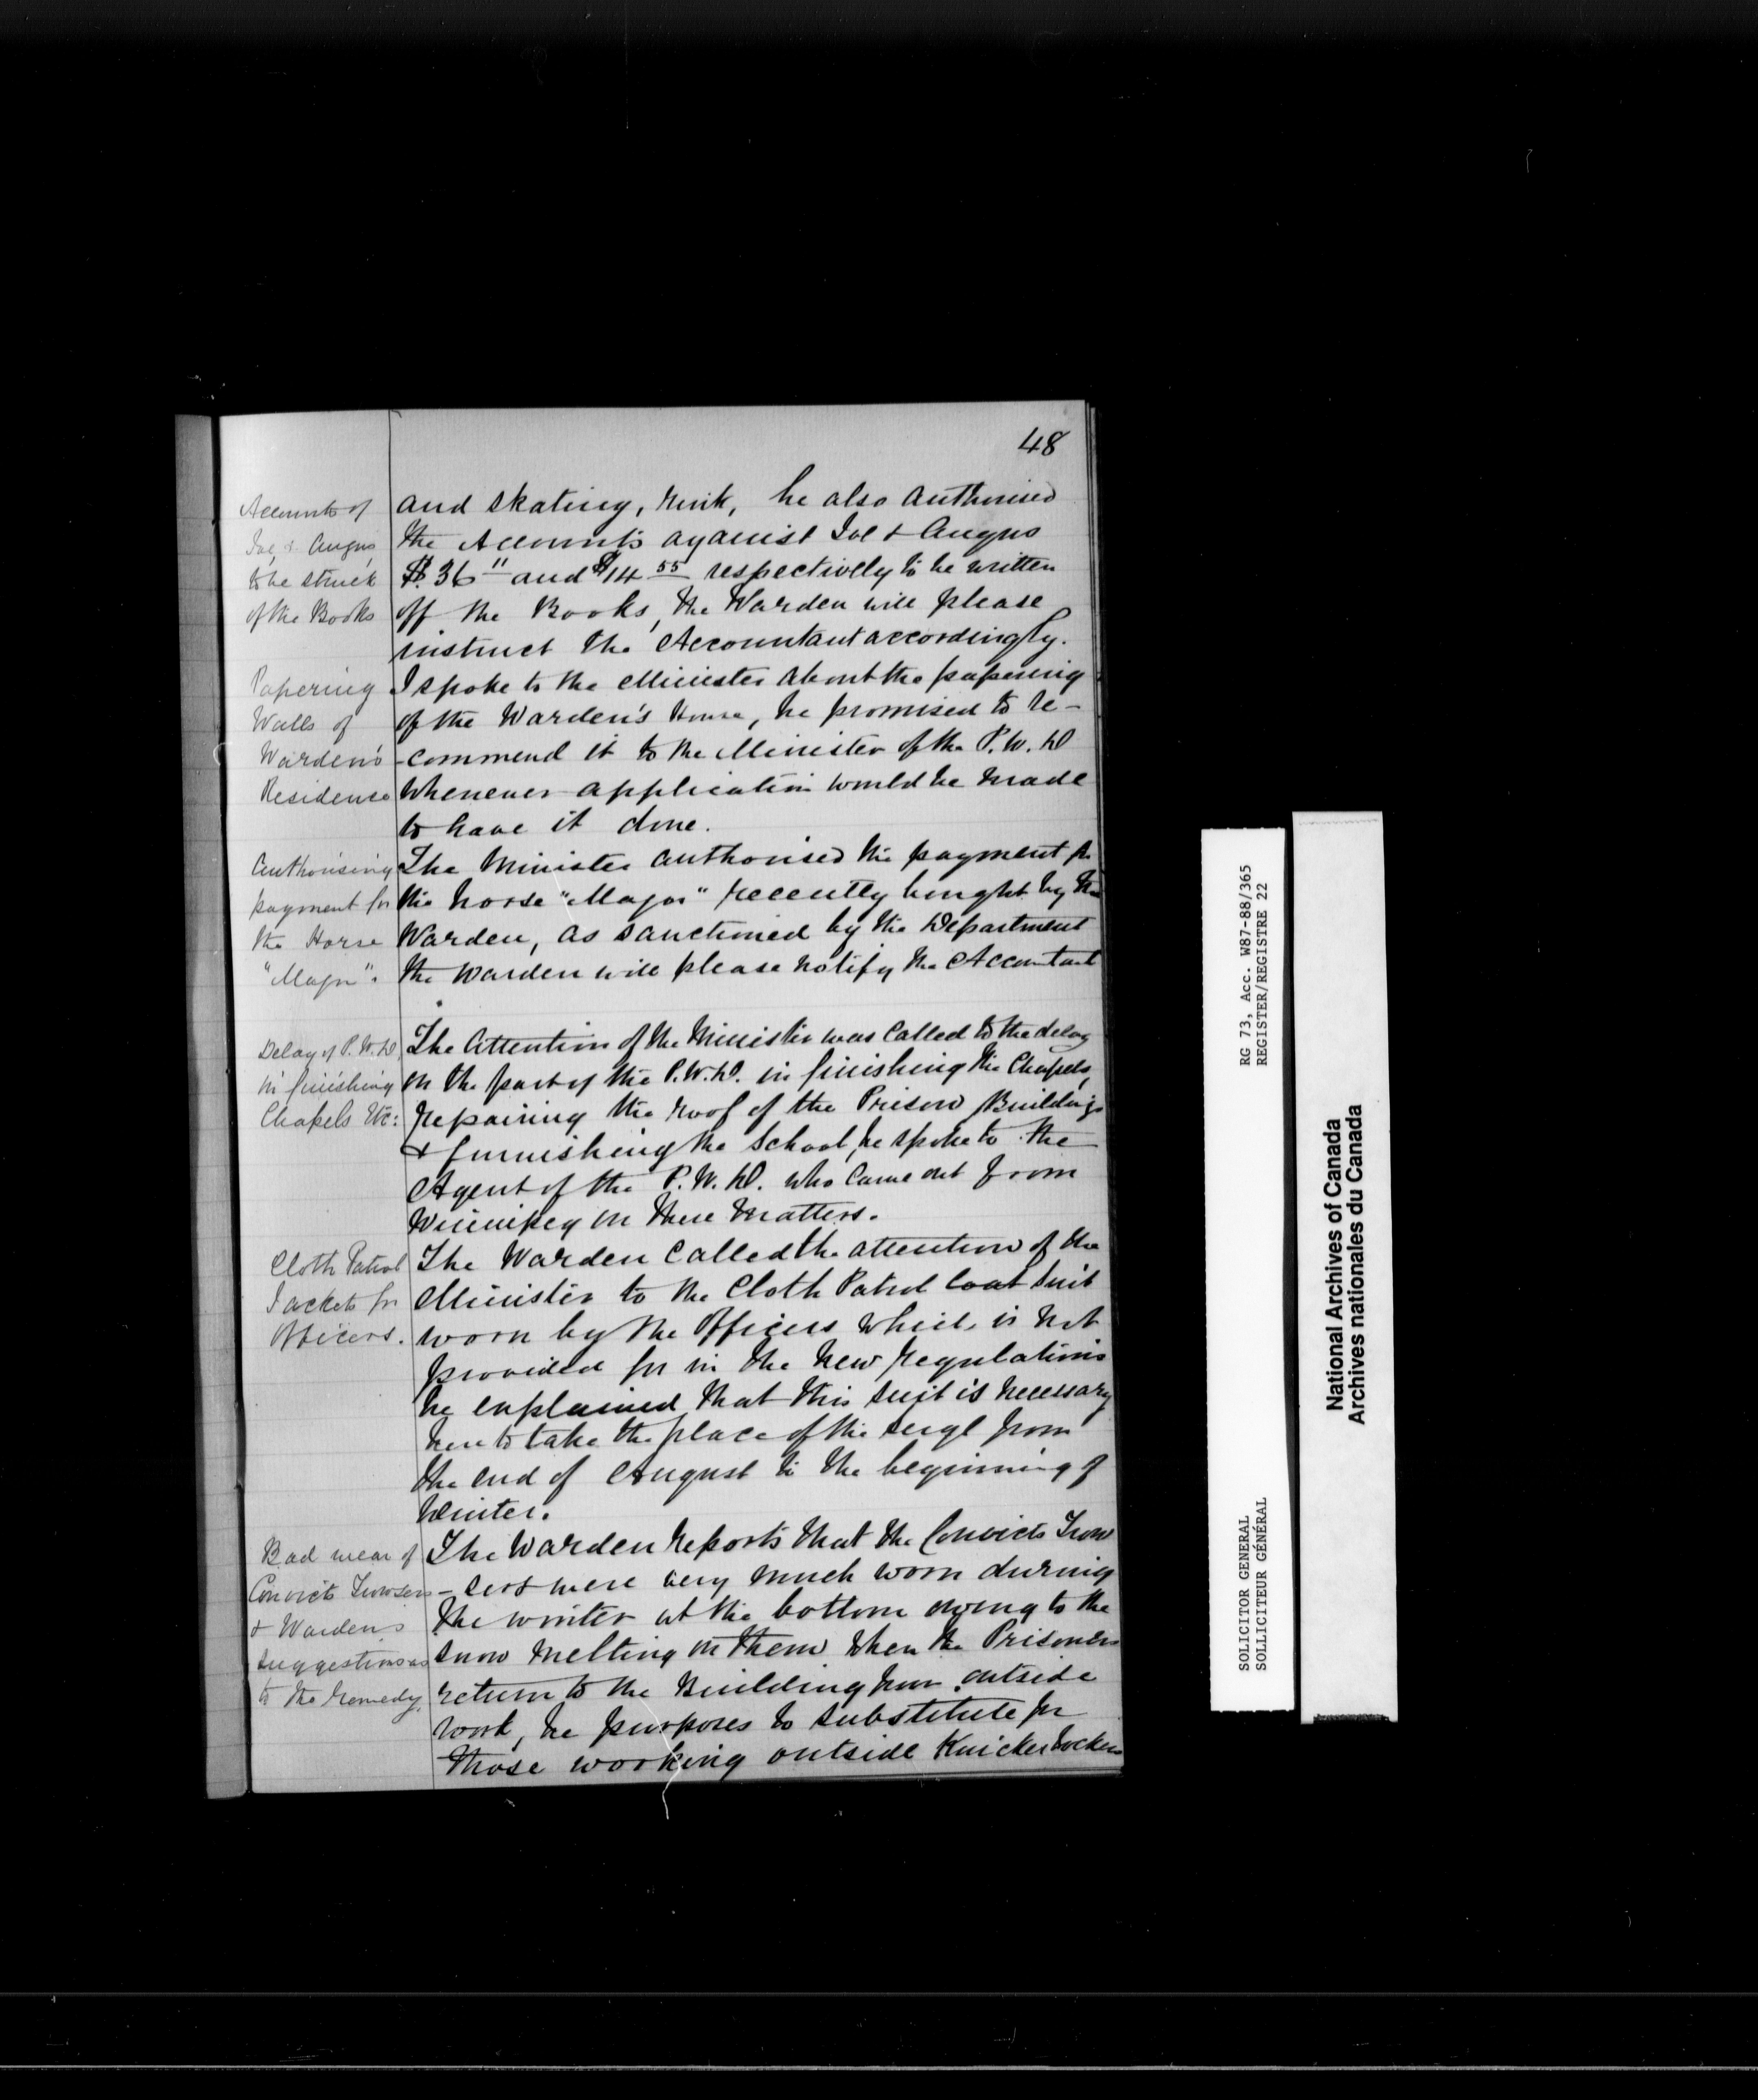 48
Accounts of
Joe & Angus
to be struck
of the Books
and skating, rink, he also authorised
the Accounts against Joe & Angus
$36" and $14 55 respectively to be written
off the Books, the Warden will please
instruct the Accountant accordingly.
Papering
Walls of
Warden's
Residence
I spoke to the Minister about the papering
of the Warden's House, he promised to re-
-commend it to the Minister of the P.W.D
whenever application would be made
to have it done.
Authorising
payment for
the Horse
"Major".
The Minister authorised the payment for
the horse "Major" recently bought by the
Warden, as sanctioned by the Department
the Warden will please notify the Accountant
Delay of P.W.D.
in finishing
Chapels Etc:
The Attention of the Minister was called to the delay
on the part of the P.W.D. in finishing the Chapels,
repairing the roof of the Prison Buildings
& furnishing the School, he spoke to the
Agent of the P.W.D. who came out from
Winnipeg on these matters.
Cloth Patrol
Jackets for
Officers.
The Warden called the attention of the
Minister to the Cloth Patrol Coat Suit
worn by the Officers which is not
provided for in the new regulations
he explained that this suit is necessary
here to take the place of the serge from
the end of August to the beginning of
Winter.
Bad wear of
Convicts Trowsers
& Warden's
suggestions as
to the remedy.
The Warden reports that the Convicts Trow
-sers were very much worn during
the winter at the bottom owing to the
snow melting on them when the Prisoners
return to the Building from outside
work, he purposes to substitute for
those working outside Knickerbockers
RG 73, Acc. W87-88/365
REGISTER/REGISTRE 22
SOLICITOR GENERAL
SOLLICITEUR GÉNÉRAL
National Archives of Canada
Archives nationales du Canada